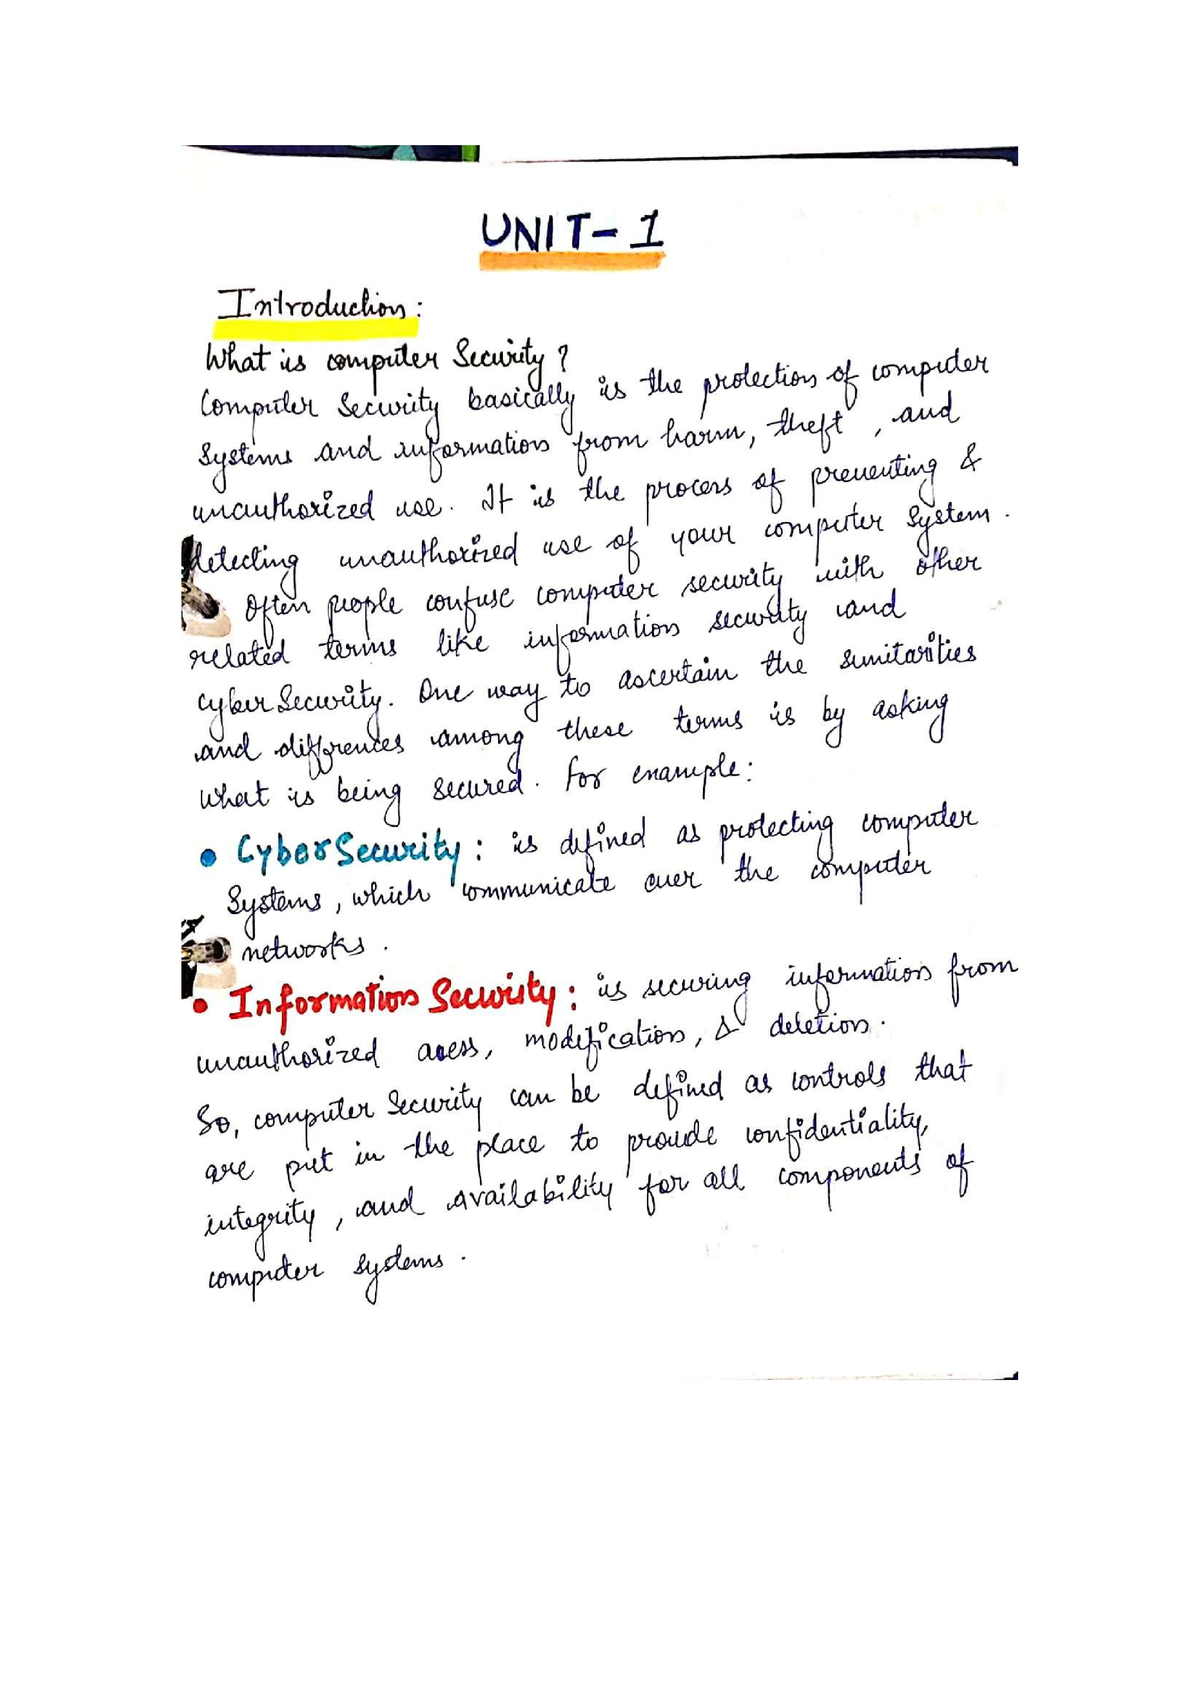 UNIT-1
Introduction:
What is computer Security?
Computer Security basically is the protection of computer
Systems and information from harm, theft, and
unauthorized use. It is the process of preventing &
detecting unauthorized use of your computer system.
Often people confuse computer security with other
related terms like information security and
cyberSecurity. One way to ascertain the similarities
and differences among these terms is by asking
what is being secured. For example:
• CyberSecurity: is defined as protecting computer
Systems, which communicate over the computer
networks.
• Information Security: is securing information from
unauthorized acess, modification, & deletion.
So, computer Security can be defined as controls that
are put in the place to provide confidentiality,
integrity, and availability for all components of
computer systems.